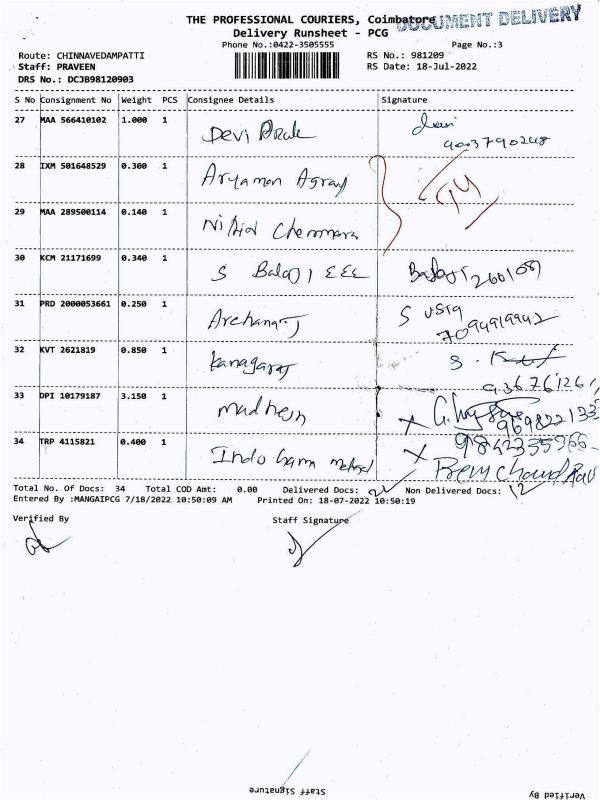 THE PROFESSIONAL COURIERS, Coimbatore
DOCUMENT DELIVERY
Delivery Runsheet - PCG
Phone No.:0422-3505555
Page No.:3
Route: CHINNAVEDAMPATTI
RS No.: 981209
Staff: PRAVEEN
RS Date: 18-Jul-2022
DRS No.: DCJB98120903
S No Consignment No Weight PCS Consignee Details Signature
27 MAA 566410102 1.000 1 Devi
9003790248
28 IXM 501648529 0.300 1 Aryaman
29 MAA 289500114 0.140 1
30 KCM 21171699 0.340 1 S Balaji EEE Balaji
31 PRD 2000053661 0.250 1 Archana S
7094919942
32 KVT 2621819 0.850 1 Kanagaraj S.
33 DPI 10179187 3.150 1 madhesh
34 TRP 4115821 0.400 1 Indo
9842335566
Total No. Of Docs: 34 Total COD Amt: 0.00 Delivered Docs: Non Delivered Docs: 12
Entered By :MANGAIPCG 7/18/2022 10:50:09 AM Printed On: 18-07-2022 10:50:19
Verified By Staff Signature
Staff Signature Verified By